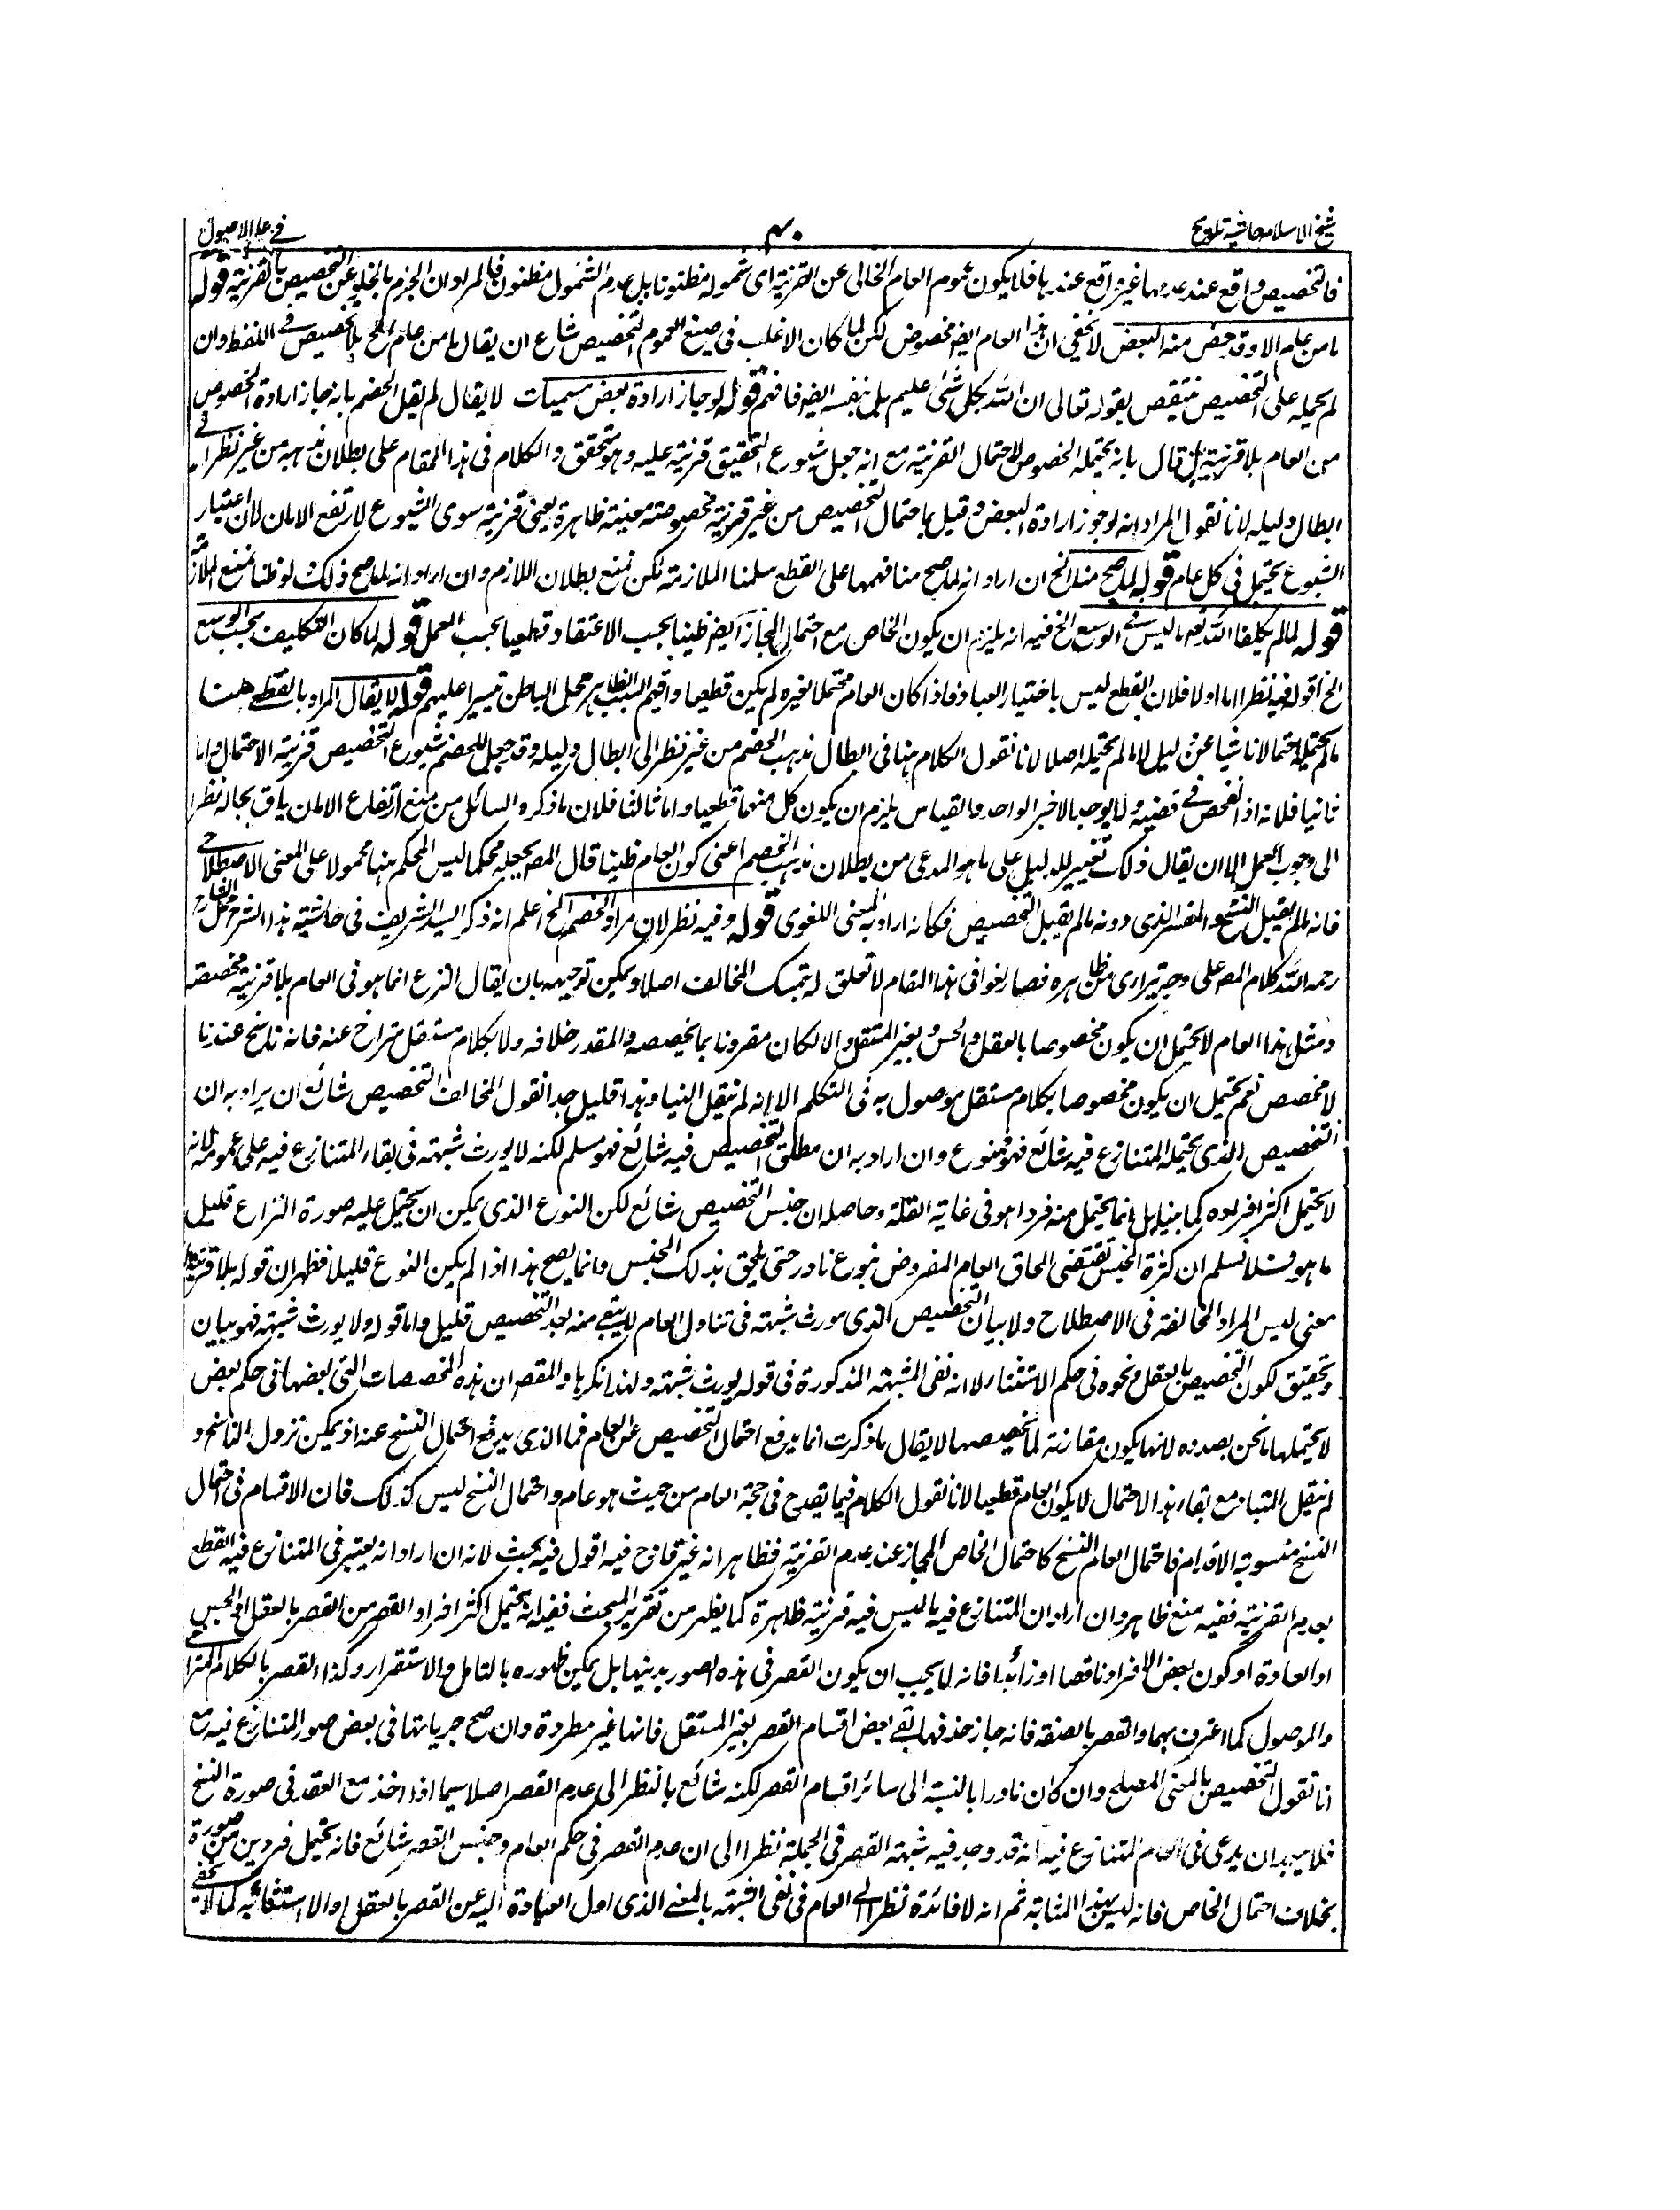 شيخ الاسلام حاشية تلويح
٤٠
في علم الاصول
فالتخصيص واقع عند عدمها غير واقع عندها فلا يكون عموم العام الخالى عن القرينة اى شموله مظنونا بل عدم الشمول مظنون فالمراد ان الجزم بالخلو عن التخصيص بالقرينة قوله
ما من عام الا وقد خص منه البعض لا يخفى ان هذا العام ايضا مخصوص لكن لما كان الاغلب فى صيغ العموم التخصيص شاع ان يقال ما من عام الخ بلا تخصيص فى اللفظ وان
لم يحمله على التخصيص ينتقض بقوله تعالى ان الله بكل شئ عليم بل بنفسه ايضا فافهم قوله لو جاز ارادة بعض مسميات لا يقال لم يقل الخصم بانه جاز ارادة الخصوص
من العام بلا قرينة بل قال بانه يحتمله الخصوص لاحتمال القرينة مع انه جعل شيوع التحقيق قرينة عليه وهو متحقق والكلام فى هذا المقام على بطلان مذهبه من غير نظر الى
ابطال دليله لانا نقول المراد انه لو جوز ارادة البعض وقيل باحتمال التخصيص من غير قرينة مخصوصة معينة ظاهرة يعنى قرينة سوى الشيوع لارتفع الامان لان اعتبار
الشيوع يحتمل فى كل عام قوله لما صح منا الخ ان اراد انه لما صح منا فهمها على القطع سلمنا الملازمة لكن نمنع بطلان اللازم وان اراد انه لما صح ذلك لو ظنا نمنع الملازمة
قوله لما لم يكلفنا الله تع ما ليس فى الوسع الخ فيه انه يلزم ان يكون الخاص مع احتمال المجاز ايضا ظنيا بحسب الاعتقاد وقطعيا بحسب العمل قوله لما كان التكليف بحسب الوسع
الخ اقول فيه نظر اما اولا فلان القطع ليس باختيار العباد فاذا كان العام محتملا لغيره لم يكن قطعيا واقيم السبب الظاهر محل الباطن تيسيرا عليهم قوله لا يقال المراد بالقطعى ههنا
ما لم يحتمله احتمالا ناشيا عن دليل لا ما لم يحتمله اصلا لانا نقول الكلام هنا فى ابطال مذهب الخصم من غير نظر الى ابطال دليله وقد جعل للخصم شيوع التخصيص قرينة الاحتمال واما
ثانيا فلانه اذا تفحص فى قضية ولا يوجب الا خبر الواحد والقياس يلزم ان يكون كل منهما قطعيا واما ثالثا فلان ما ذكره السائل من منع ارتفاع الامان باق بحاله نظرا
الى وجوب العمل الا ان يقال ذلك تغيير للدليل على ما هو المدعى من بطلان مذهب الخصم اعنى كون العام ظنيا قال المصـ يجعله محكما ليس المحكم هنا محمولا على المعنى الاصطلاحى
فانه ما لم يقبل النسخ والمفسر الذى دونه ما لم يقبل التخصيص فكانه اراد به المعنى اللغوى قوله وفيه نظر لان مراد الخصم الخ اعلم انه ذكر السيد الشريف فى حاشية هذا الشرح حمل الشارح
رحمه الله كلام المصـ على وجه يترادى من ظاهره فصار لغوا فى هذا المقام لا تعلق له بتمسك المخالف اصلا ويمكن توجيهه بان يقال النزاع انما هو فى العام بلا قرينة مخصصة
ومثل هذا العام لا يحتمل ان يكون مخصوصا بالعقل والحس وبغير المستقل والا لكان مقرونا بما يخصصه والمقدر خلافه ولا بكلام مستقل متراخ عنه فانه ناسخ عندنا
لا مخصص نعم يحتمل ان يكون مخصوصا بكلام مستقل موصول به فى التكلم الا انه لم ينقل الينا وهذا قليل جدا نقول المخالف التخصيص شائع ان يراد به ان
التخصيص الذى يحتمله المتنازع فيه شائع فهو ممنوع وان اراد به ان مطلق التخصيص فيه شائع فهو مسلم لكنه لا يورث شبهة فى بقاء المتنازع فيه على عمومه لانه
لا يحتمل اكثر افراده كما بينا بل انما يحتمل منه فردا هو فى غاية القلة وحاصله ان جنس التخصيص شائع لكن النوع الذى يمكن ان يحتمل عليه صورة النزاع قليل
ما هو فلا نسلم ان كثرة الجنس تقتضى الحاق العام المفروض بنوع نادر حتى يلحق بذلك الجنس وانما يصح هذا اذا لم يكن النوع قليلا فظهر ان قوله بلا قرينة
معنى ليس المراد المخالفة فى الاصطلاح ولا بيان التخصيص الذى يورث شبهة فى تناول العام لما يبقى منه بعد التخصيص قليل واما قوله ولا يورث شبهة فهو بيان
وتحقيق لكون التخصيص بالعقل ونحوه فى حكم الاستثناء لا انه نفى الشبهة المذكورة فى قوله يورث شبهة ولهذا نكرها والمقصـ ان هذه المخصصات التى بعضها فى حكم بعض
لا يحتملها ما نحن بصدده لانها يكون مقارنة لما يخصصها لا يقال ما ذكرت انما يدفع احتمال التخصيص عن العام فما الذى يدفع احتمال النسخ عنه اذ يمكن نزول الناسخ و
لم ينقل الينا ومع بقاء هذا الاحتمال لا يكون العام قطعيا لانا نقول الكلام فيما يقدح فى حجة العام من حيث هو عام واحتمال النسخ ليس كذلك فان الاقسام فى احتمال
النسخ متسوية الاقدام فاحتمال العام النسخ كاحتمال الخاص المجاز عند عدم القرينة فظاهر انه غير قادح فيه اقول فيه بحث لانه ان اراد انه يعتبر فى المتنازع فيه القطع
بعدم القرينة ففيه منع ظاهر وان اراد ان المتنازع فيه ما ليس فيه قرينة ظاهرة كما يظهر من تقرير المبحث ففيه انه يحتمل اكثر افراد القصر من القصر بالعقل او الحس
او العادة او كون بعض الافراد ناقصا او زائدا فانه لا يجب ان يكون القصر فى هذه الصور بديهيا بل يمكن ظهوره بالتامل والاستقرار وكذا القصر بالكلام المتراخى
والموصول كما اعترف بهما والقصر بالصفة فانه جاز حذفها بقى بعض اقسام القصر بغير المستقل فانها غير مطردة وان صح جريانها فى بعض صور المتنازع فيه مع
انا نقول التخصيص بالمعنى المصطلح وان كان نادرا بالنسبة الى سائر اقسام القصر لكنه شائع بالنظر الى عدم القصر اصلا سيما اذا اخذ مع العقد فى صورة النسخ
فلا يبعد ان يدعى فى العام المتنازع فيه انه قد وجد فيه شبهة القصر فى الجملة نظرا الى ان عدم القصر فى حكم العام وجنس القصر شائع فانه يحتمل فردين من صورة
بخلاف احتمال الخاص فانه ليس بهذه المثابة ثم انه لا فائدة نظرا الى العام فى نفى الشبهة بالمعنى الذى اول العبادة اليه عن القصر بالعقل والاستثنائية كما لا يخفى